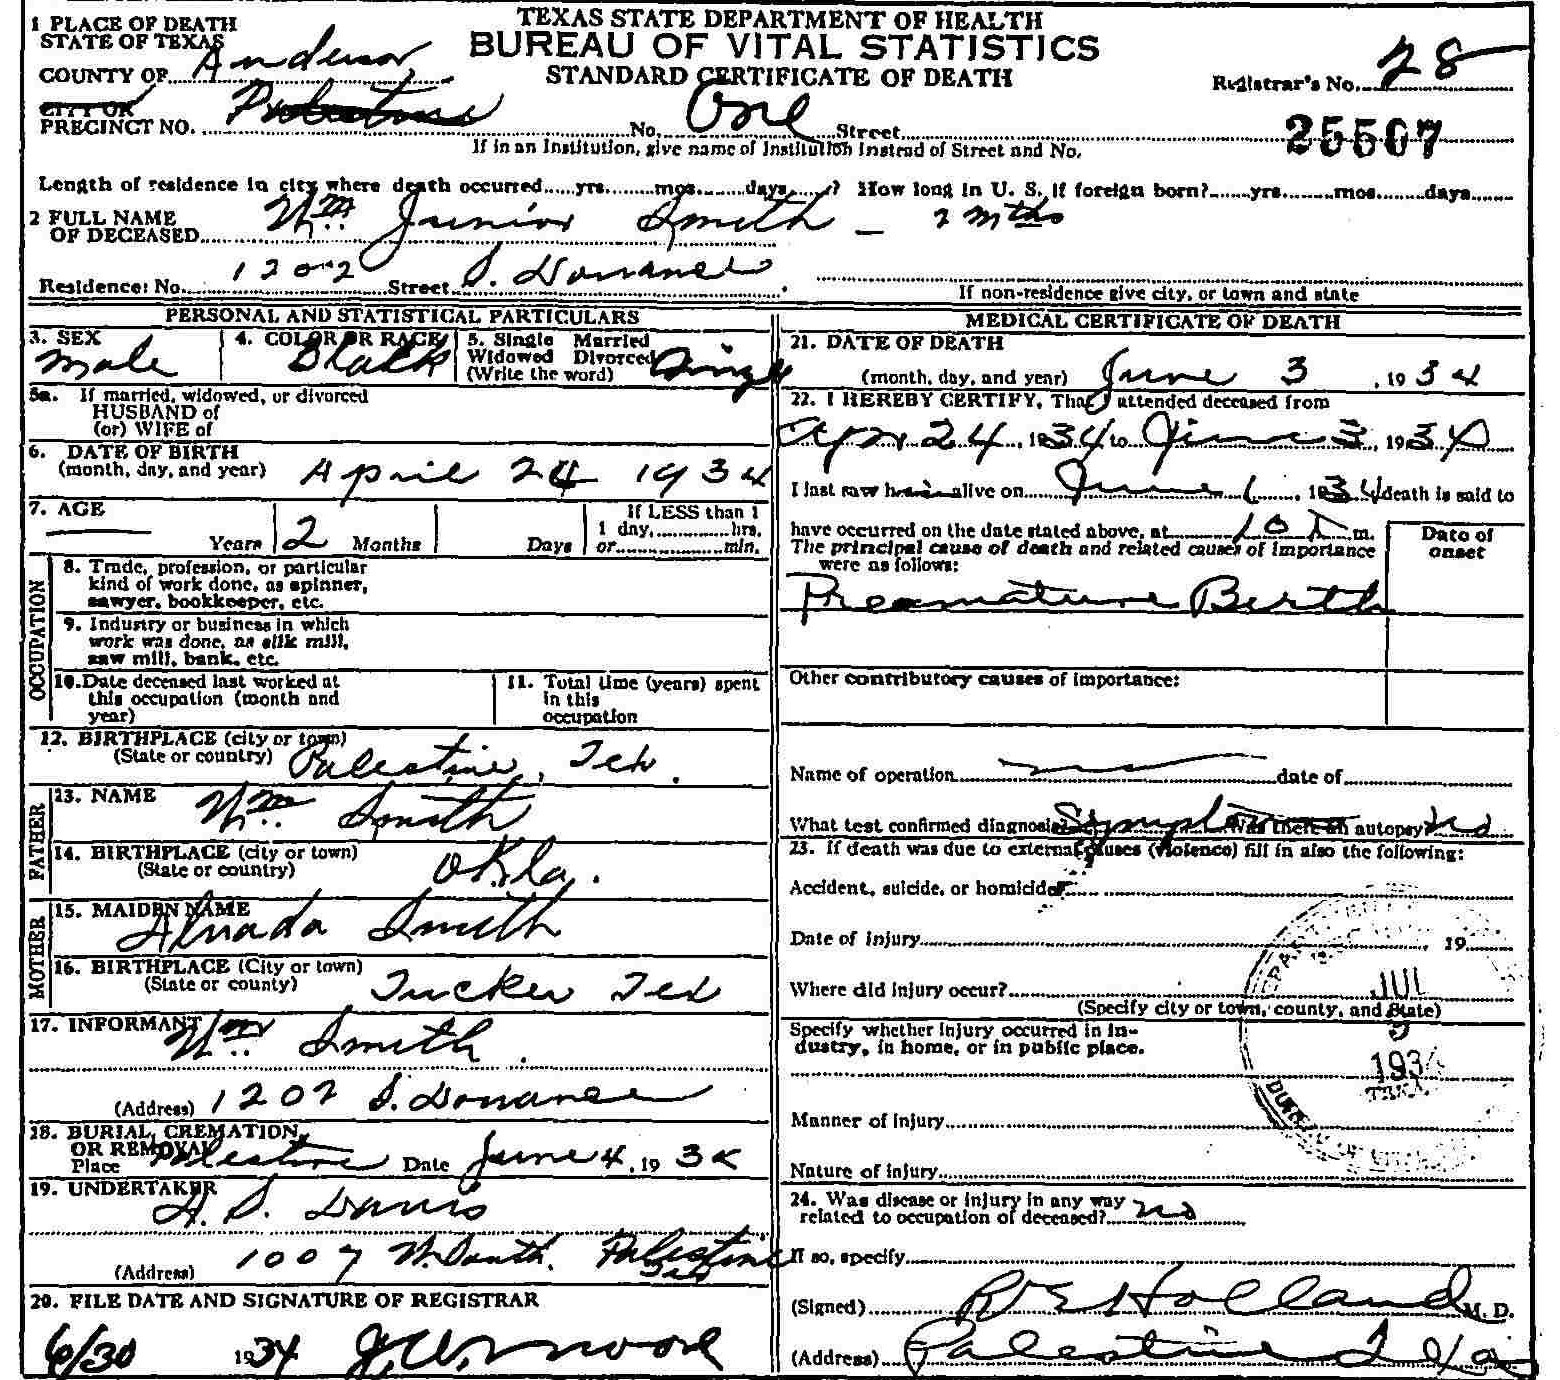 TEXAS STATE DEPARTMENT OF HEALTH
BUREAU OF VITAL STATISTICS
STANDARD CERTIFICATE OF DEATH
1 PLACE OF DEATH
STATE OF TEXAS
COUNTY OF Anderson
Registrar's No. 28
CITY OR Palestine
PRECINCT NO. No. One Street
25507
If in an Institution, give name of Institution instead of Street and No.
Length of residence in city where death occurred yrs. mos. days ? How long in U. S. if foreign born? yrs. mos. days
2 FULL NAME OF DECEASED Wm. Junior Smith - 2 mths
Residence: No. 1202 Street S.
If non-residence give city, or town and state
PERSONAL AND STATISTICAL PARTICULARS
3. SEX Male
4. COLOR OR RACE Black
5. Single Married Widowed Divorced (Write the word) Single
5a. If married, widowed, or divorced
HUSBAND of
(or) WIFE of
6. DATE OF BIRTH
(month, day, and year) April 24 1934
7. AGE
— Years 2 Months Days
If LESS than 1
1 day, hrs.
or min.
OCCUPATION
8. Trade, profession, or particular
kind of work done, as spinner,
sawyer, bookkeeper, etc.
9. Industry or business in which
work was done, as silk mill,
saw mill, bank, etc.
10. Date deceased last worked at
this occupation (month and
year)
11. Total time (years) spent
in this
occupation
12. BIRTHPLACE (city or town)
(State or country) Palestine, Tex.
FATHER
13. NAME Wm. Smith
14. BIRTHPLACE (city or town)
(State or country) Okla.
MOTHER
15. MAIDEN NAME
Smith
16. BIRTHPLACE (City or town)
(State or county) Tucker Tex
17. INFORMANT Wm Smith.
(Address) 1202 S.
18. BURIAL, CREMATION,
OR REMOVAL
Place Palestine Date June 4, 1934
19. UNDERTAKER
A. S. Davis
(Address) 1007 Palestine
Tex
20. FILE DATE AND SIGNATURE OF REGISTRAR
6/30 1934
MEDICAL CERTIFICATE OF DEATH
21. DATE OF DEATH
(month, day, and year) June 3, 1934
22. I HEREBY CERTIFY, That I attended deceased from
Apr 24, 1934 to June 3, 1934
I last saw him alive on June 1, 1934 death is said to
have occurred on the date stated above, at 10 m.
The principal cause of death and related causes of importance
were as follows:
Date of
onset
Preamature Birth
Other contributory causes of importance:
Name of operation date of
What test confirmed diagnosis? Symptoms Was there an autopsy? no
23. If death was due to external causes (violence) fill in also the following:
Accident, suicide, or homicide?
Date of injury , 19
Where did injury occur?
(Specify city or town, county, and State)
Specify whether injury occurred in in-
dustry, in home, or in public place.
Manner of injury
Nature of injury
JUL
5
1934
24. Was disease or injury in any way
related to occupation of deceased? no
If so, specify
(Signed) R E Holland M. D.
(Address) Palestine Texas